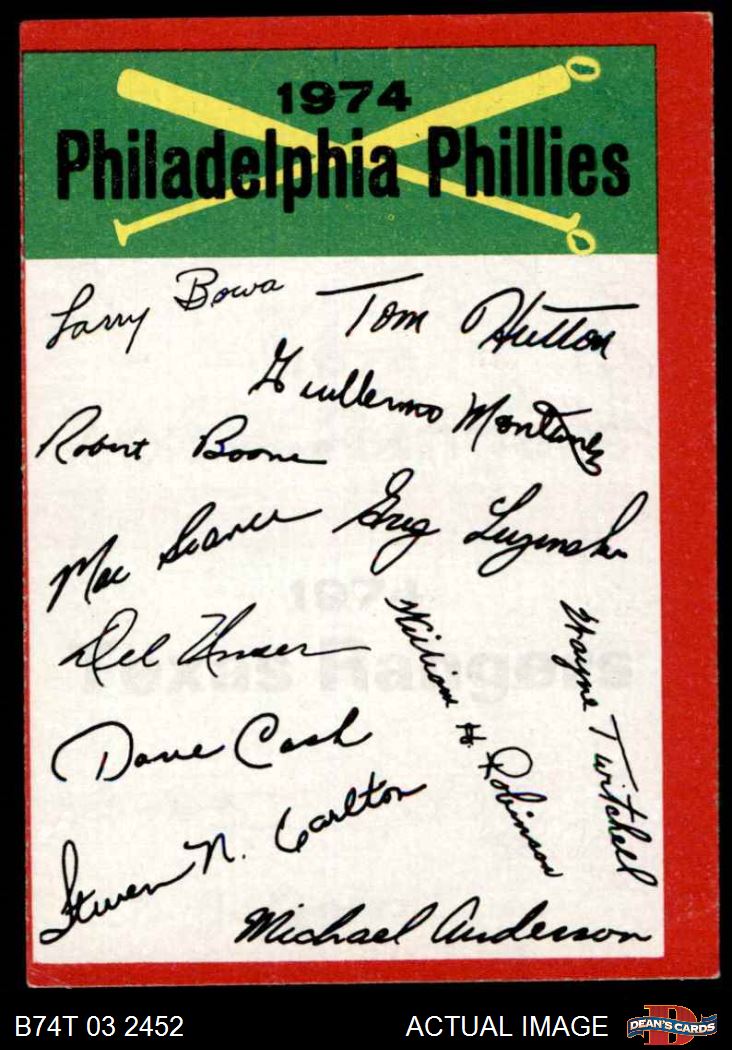 1974
Philadelphia Phillies
Larry Bowa
Tom Hutton
Guillermo Montanez
Robert Boone
Mac Scarce
Greg Luzinski
Del Unser
William H. Robinson
Wayne Twitchell
Dave Cash
Steven N. Carlton
Michael Anderson
1974
Texas Rangers
B74T 03 2452
ACTUAL IMAGE
DEAN'S CARDS